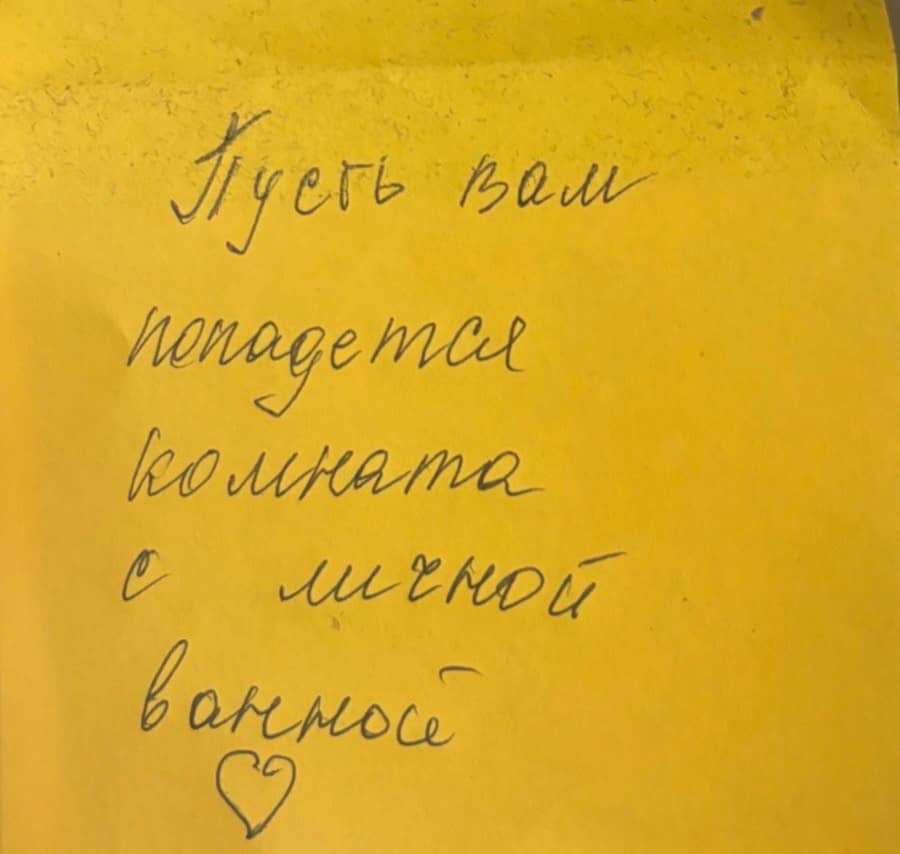 Пусть вам
попадется
комната
с личной
ванной